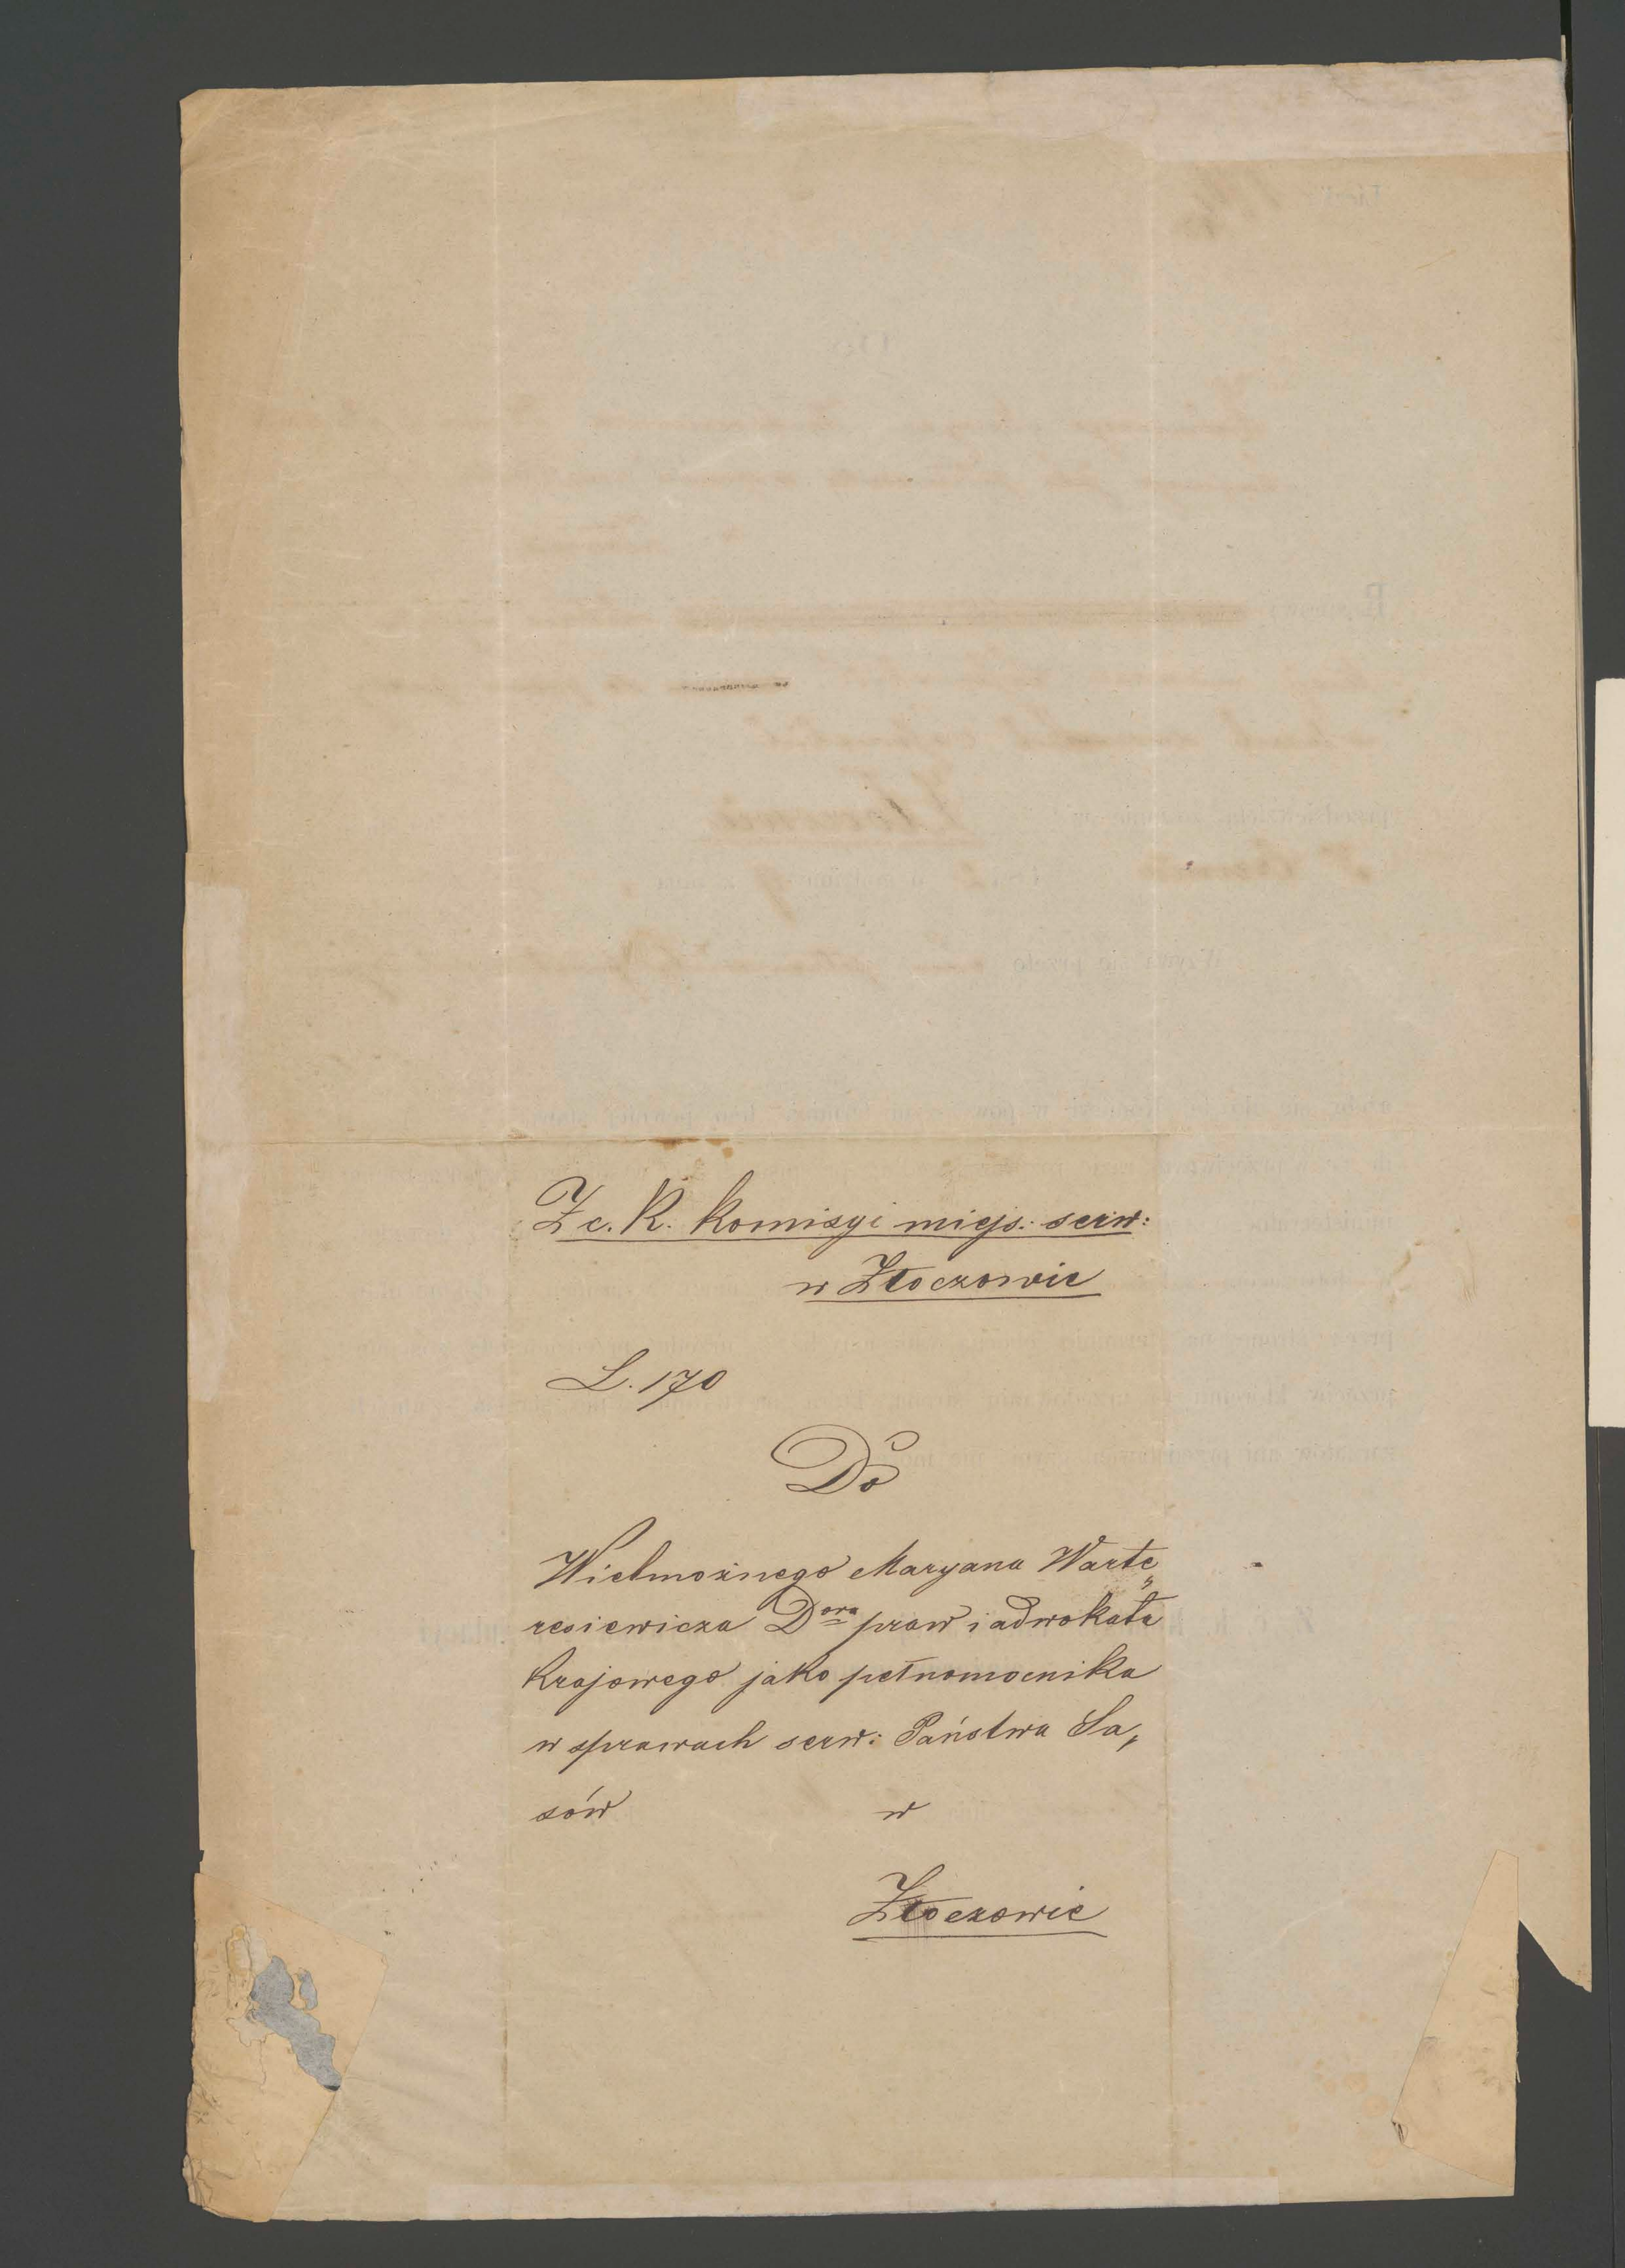 Z c. K. Komisyi miejs. serw:
w Złoczowie
L. 170
Do
Wielmożnego Maryana Warte„
resiewicza Dora praw i adwokata
Krajowego jako pełnomocnika
w sprawach serw: Państwa Sa„
sów w
Złoczowie